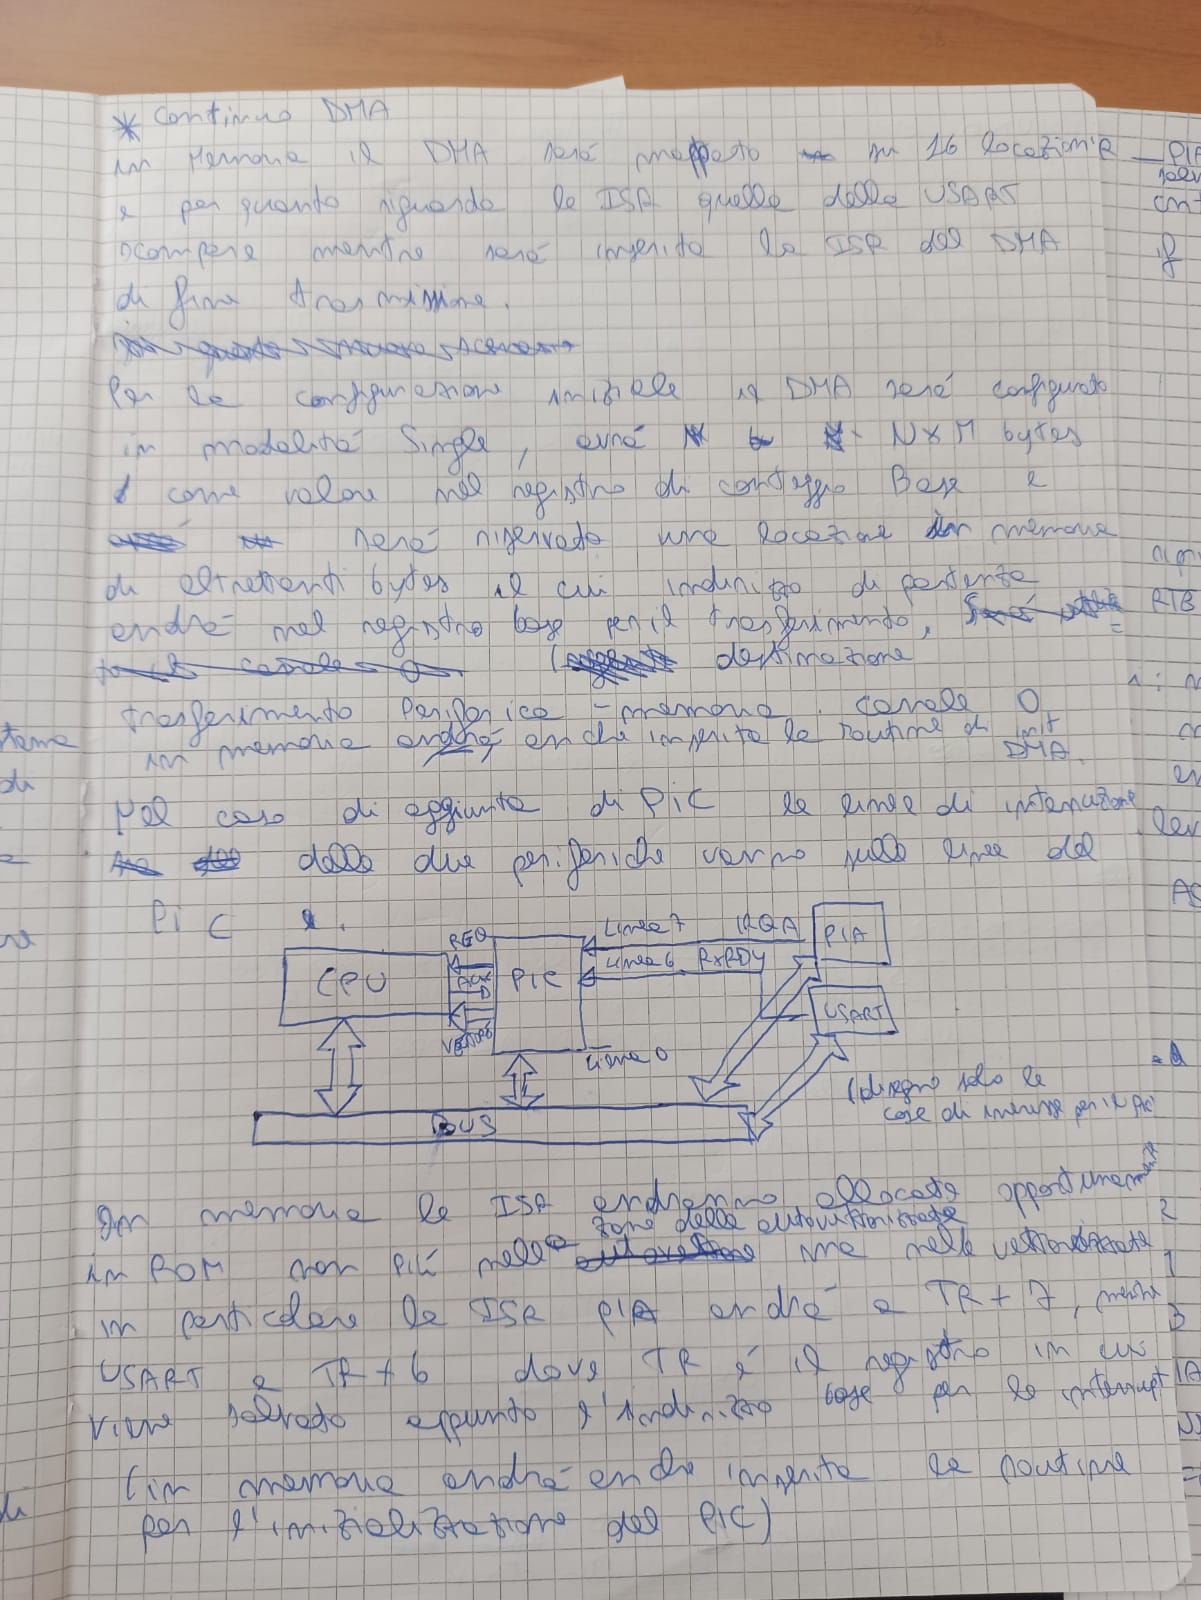 * Continuo DMA
in Memoria il DMA sarà mappato su 16 locazioni
e per quanto riguarda le ISR quella della USART
scompare mentre sarà inserita la ISR del DMA
di fine trasmissione.
Per la configurazione iniziale il DMA sarà configurato
in modalità Single, avrà N×M bytes
come valore nel registro di conteggio Base e
sarà riservata una locazione in memoria
di altrettanti bytes il cui indirizzo di partenza
andrà nel registro base per il trasferimento,
( destinazione
trasferimento Periferica - memoria. canale 0
in memoria andrà anche inserita la routine di init
DMA.
Nel caso di aggiunta di PiC le linee di interruzione
delle due periferiche vanno sulle linee del
PiC
REQ
Linea 7 IRQA
PIA
CPU
ACK
PIC
Linea 6 RxRDY
USART
Linea 0
(disegno solo le
cose di interesse per il PiC)
BUS
In memoria le ISR andranno allocate
zone delle autovettorizzate
in ROM non più nelle ma nelle vettorizzate
in particolare la ISR PIA andrà a TR + 7, mentre
USART a TR + 6 dove TR è il registro in cui
viene salvato appunto l'indirizzo base per le interrupt
(in memoria andrà anche inserita la routine
per l'inizializzazione del PIC)